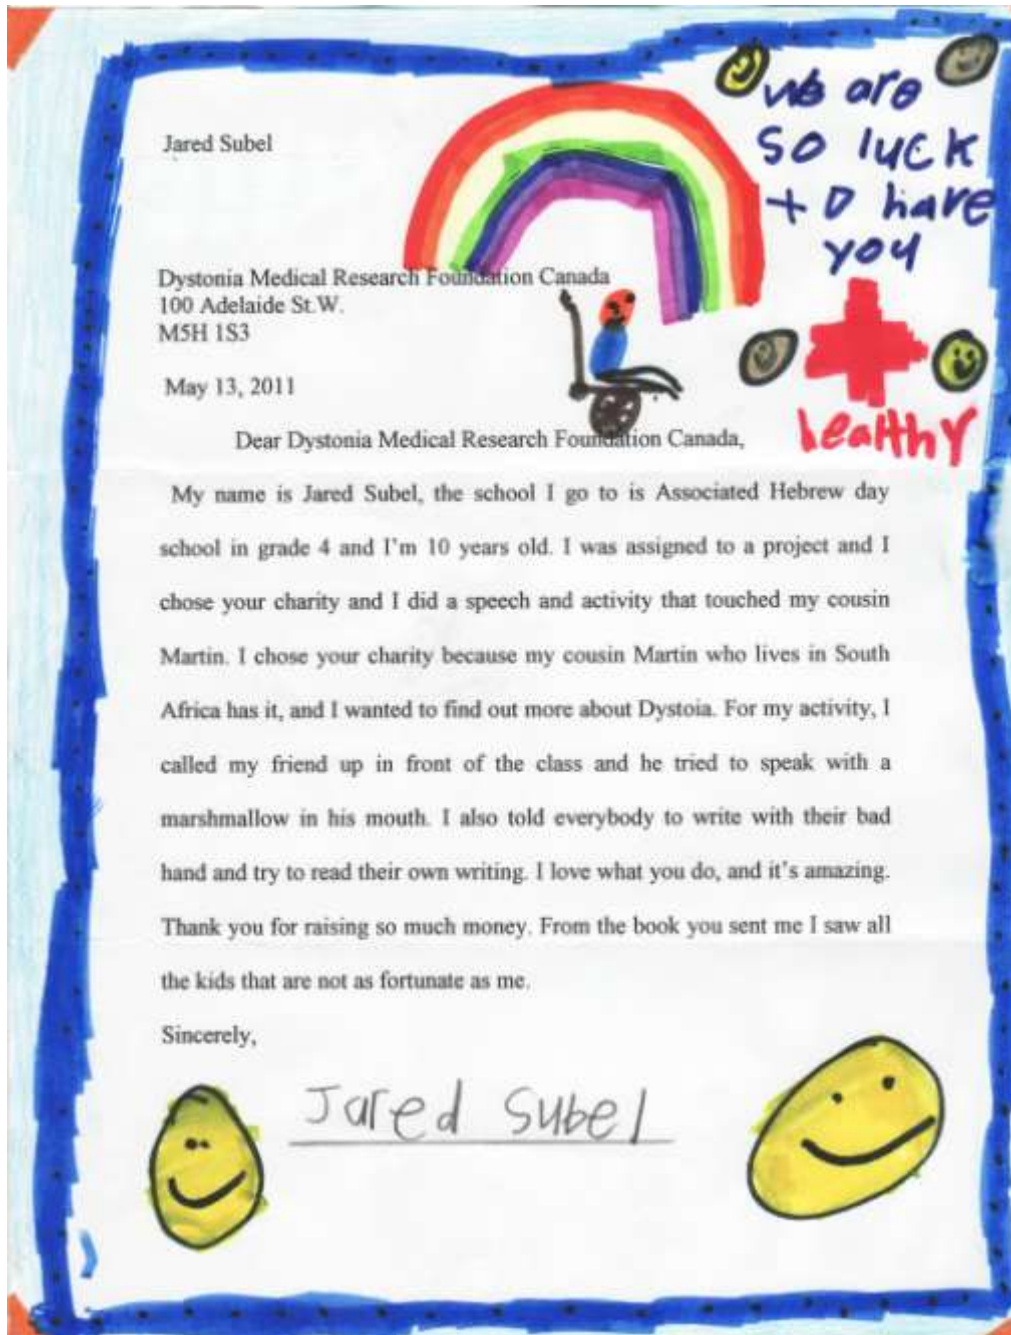 Jared Subel
we are
so luck
to have
you
healthy
Dystonia Medical Research Foundation Canada
100 Adelaide St.W.
M5H 1S3
May 13, 2011
Dear Dystonia Medical Research Foundation Canada,
My name is Jared Subel, the school I go to is Associated Hebrew day
school in grade 4 and I'm 10 years old. I was assigned to a project and I
chose your charity and I did a speech and activity that touched my cousin
Martin. I chose your charity because my cousin Martin who lives in South
Africa has it, and I wanted to find out more about Dystoia. For my activity, I
called my friend up in front of the class and he tried to speak with a
marshmallow in his mouth. I also told everybody to write with their bad
hand and try to read their own writing. I love what you do, and it's amazing.
Thank you for raising so much money. From the book you sent me I saw all
the kids that are not as fortunate as me.
Sincerely,
Jared Subel